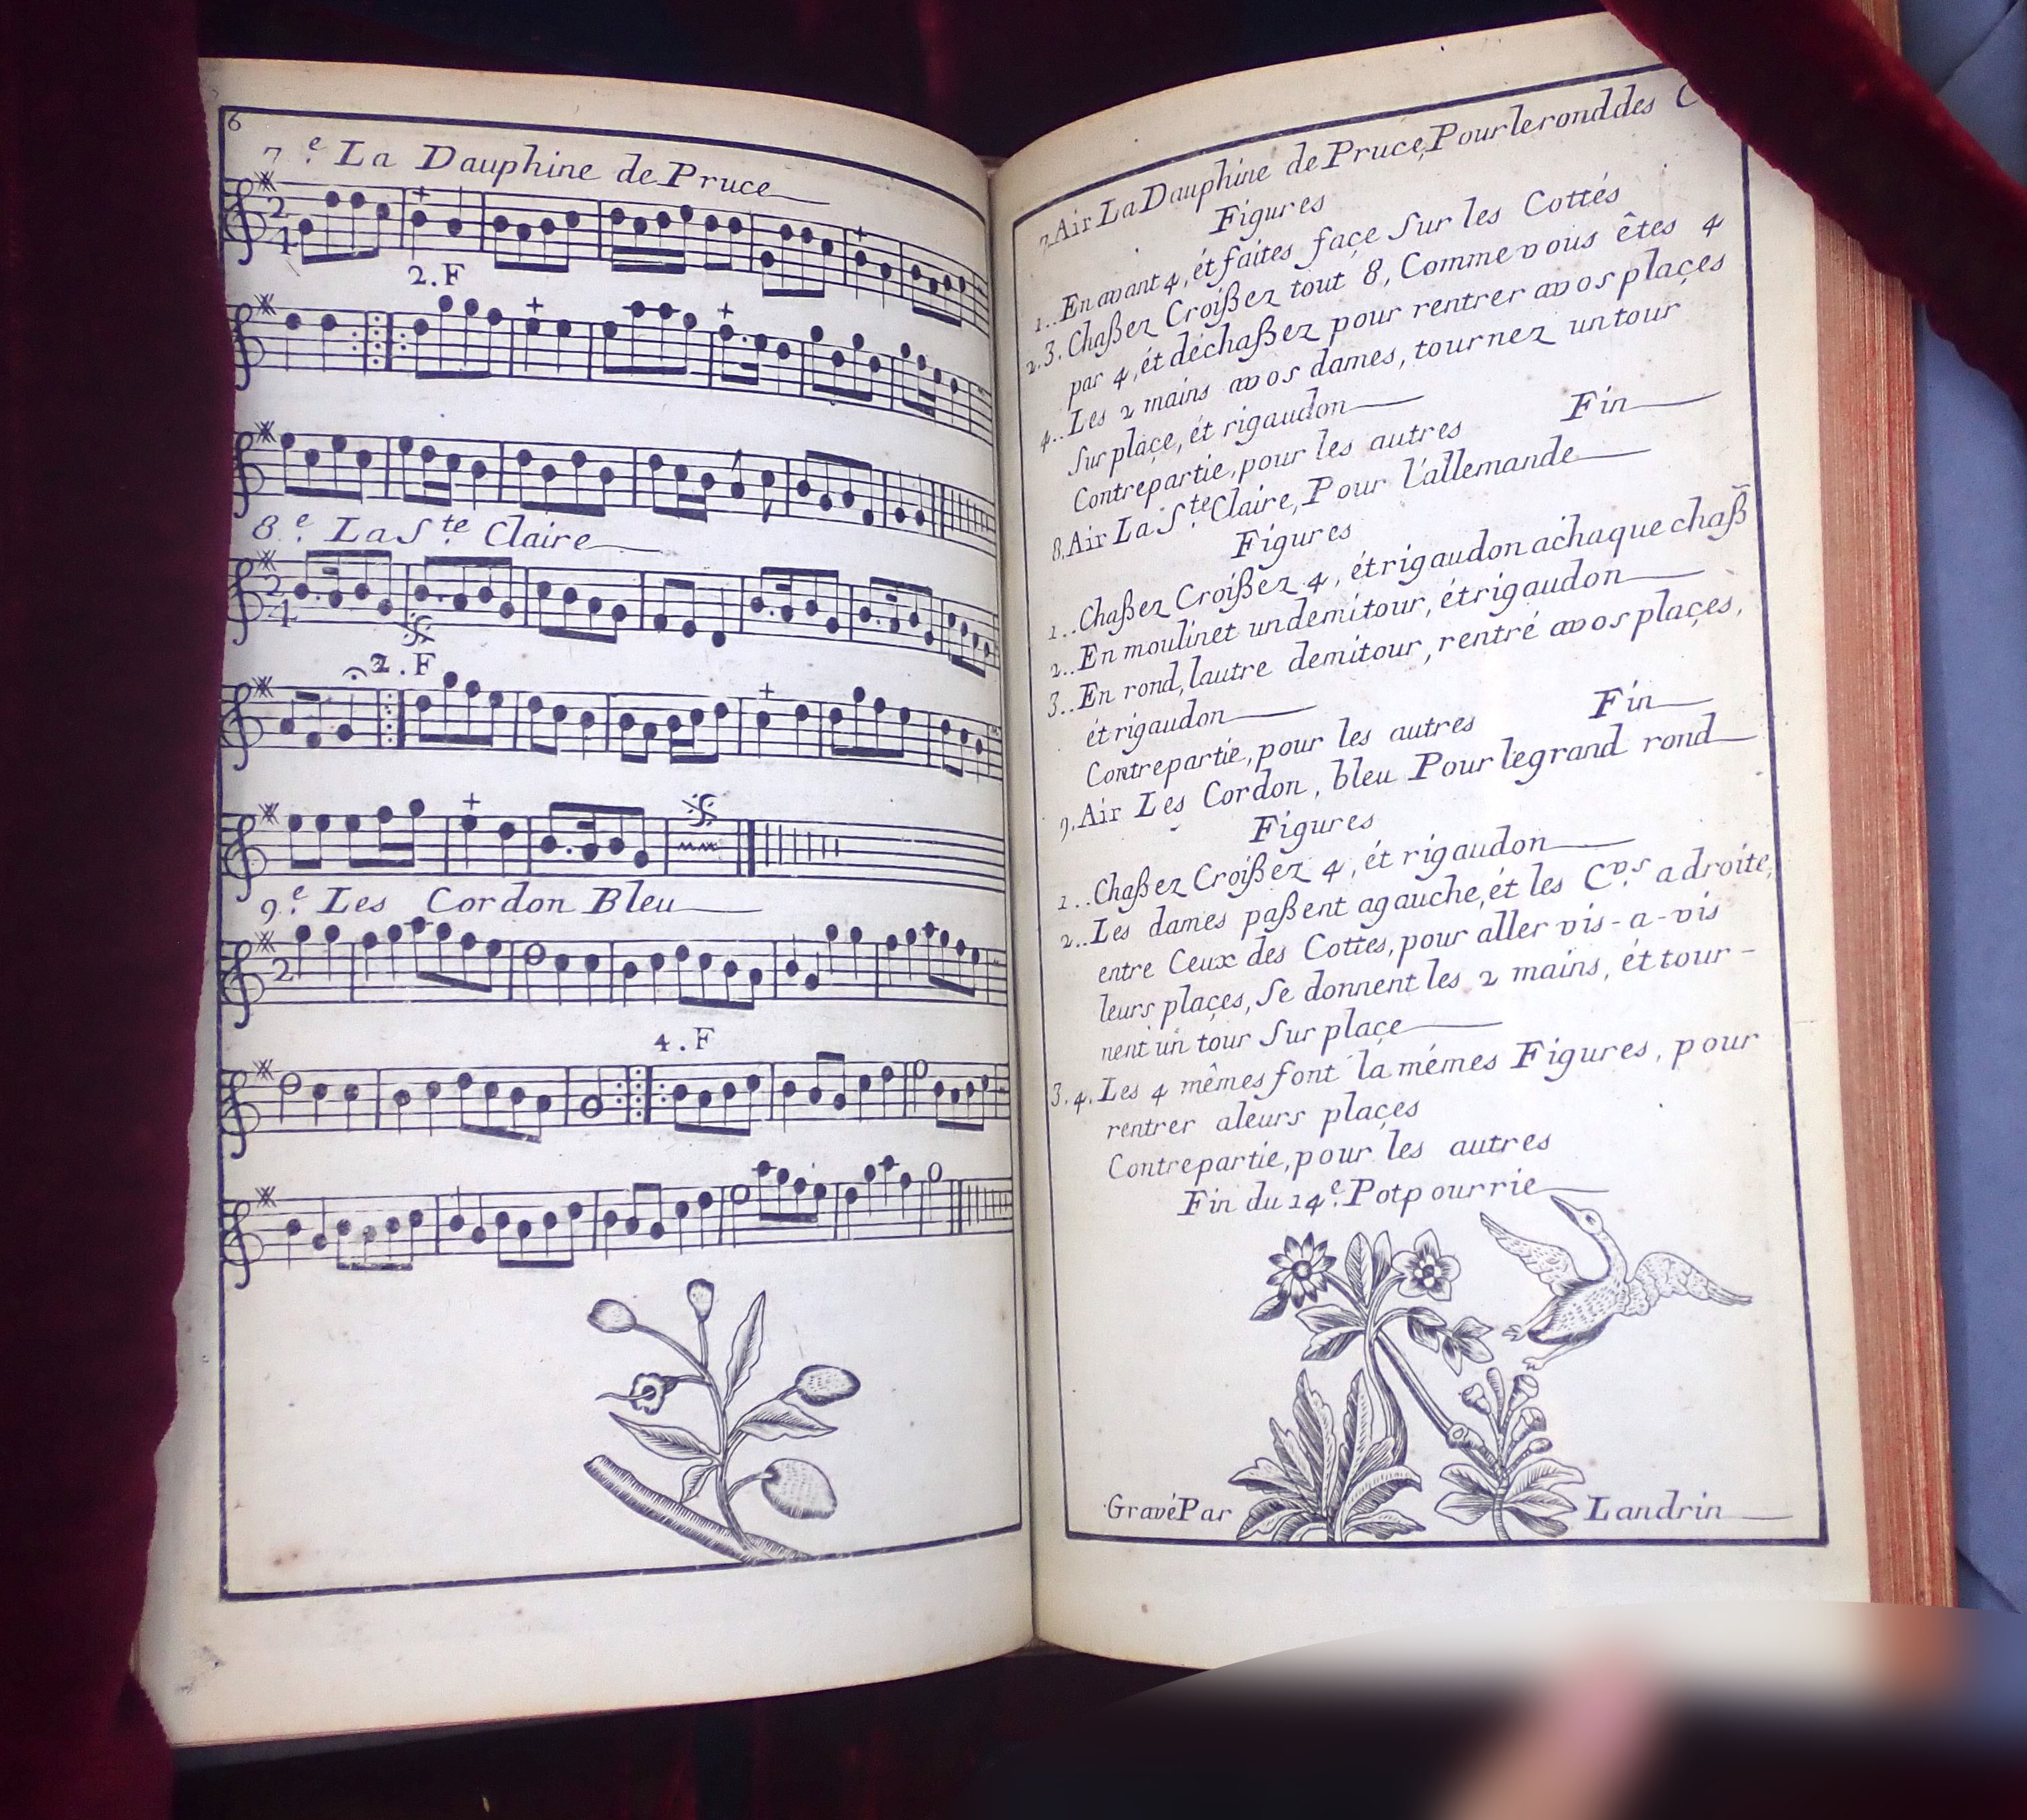 6
7.e La Dauphine de Pruce
2
4
2.F
8.e La Ste Claire
2
4
2.F
9.e Les Cordon Bleu
2
4.F
7.Air La Dauphine de Pruce, Pour le rond des C
Figures
1..En avant 4, ét faites façe Sur les Cottés
2.3. Chaßez Croißez tout 8, Comme vous êtes 4
par 4, ét déchaßez pour rentrer avos plaçes
4..Les 2 mains avos dames, tournez un tour
Sur plaçe, ét rigaudon
Contrepartie, pour les autres Fin
8.Air La Ste Claire, Pour l'allemande
Figures
1..Chaßez Croißez 4, ét rigaudon a chaque chaß
2..En moulinet un demi tour, ét rigaudon
3..En rond, lautre demi tour, rentré avos plaçes,
ét rigaudon
Contrepartie, pour les autres Fin
9.Air Les Cordon, bleu Pour le grand rond
Figures
1..Chaßez Croißez 4, ét rigaudon
2..Les dames paßent a gauche, ét les Cvrs a droite,
entre Ceux des Cottes, pour aller vis-a-vis
leurs plaçes, Se donnent les 2 mains, ét tour-
nent un tour Sur plaçe
3.4. Les 4 mêmes font la mémes Figures, pour
rentrer a leurs plaçes
Contrepartie, pour les autres
Fin du 14e. Potpourrie
Gravé Par Landrin